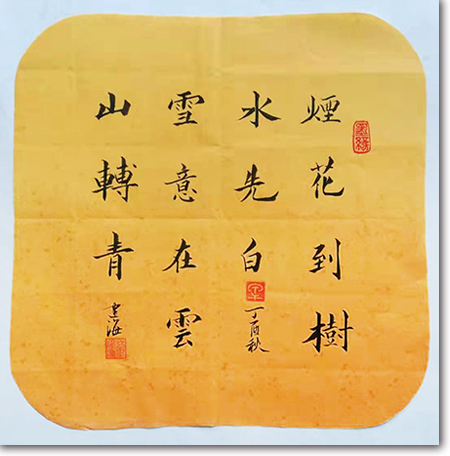 墨緣
煙花到樹
水先白
丁酉秋
雪意在雲
山轉青
海